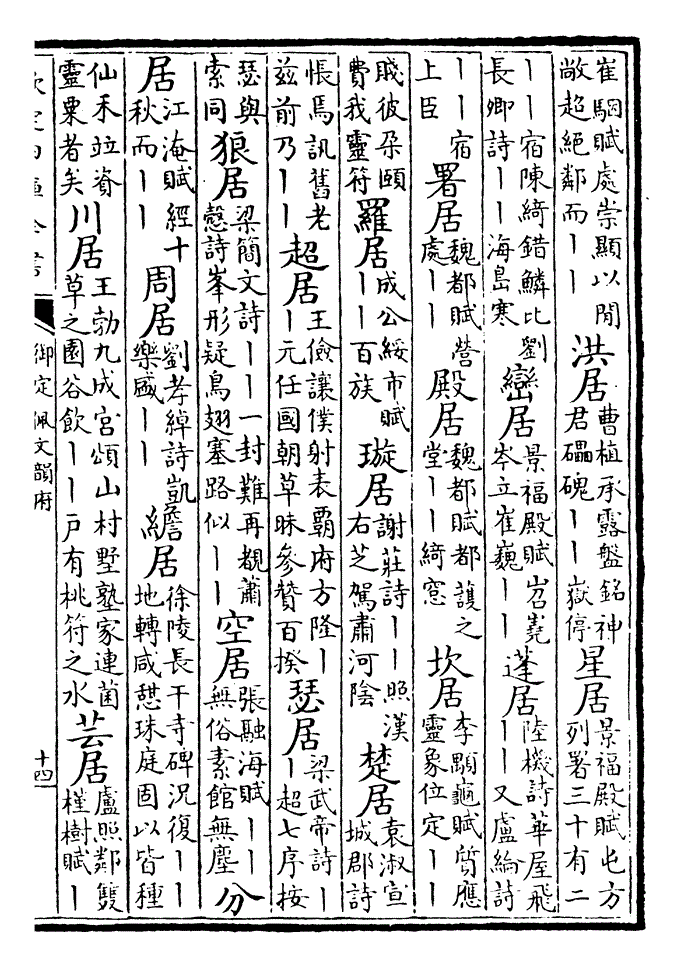 崔駰賦處崇顯以閒敞超絕鄰而丨丨 洪居 曹植承露盤銘神君礌磈丨丨嶽停 星居 景福殿賦屯方列署三十有二
丨丨宿陳綺錯鱗比劉長卿詩丨丨海島寒 巒居 景福殿賦岧嶤岑立崔巍丨丨 蓬居 陸機詩華屋飛丨丨又盧綸詩
丨丨宿上臣 署居 魏都賦營處丨丨 殿居 魏都賦都護之堂丨丨綺窓 坎居 李顒龜賦質應靈象位定丨丨
賤彼朶頤費我靈符 羅居 成公綏市賦丨丨百族 璇居 謝莊詩丨丨照漢右芝駕肅河陰 楚居 袁淑宣城郡詩
悵焉訊舊老兹前乃丨丨 超居 王儉讓僕射表覇府方隆丨丨元任國朝草昧參贊百揆 瑟居 梁武帝詩丨丨超七序按
瑟與索同 狼居 梁簡文詩丨丨一封難再覩蕭慤詩峯形疑鳥翅塞路似丨丨 空居 張融海賦丨丨無俗素館無塵 分
居 江淹賦經十秋而丨丨 周居 劉孝綽詩凱樂盛丨丨 瞻居 徐陵長干寺碑況復丨丨地轉咸憇珠庭固以皆種
仙禾竝資靈粟者矣 川居 王勃九成宮頌山村墅塾家連菌草之園谷飲丨丨戸有桃符之水 芸居 盧照鄰雙槿樹賦丨
御定佩文韻府
十四